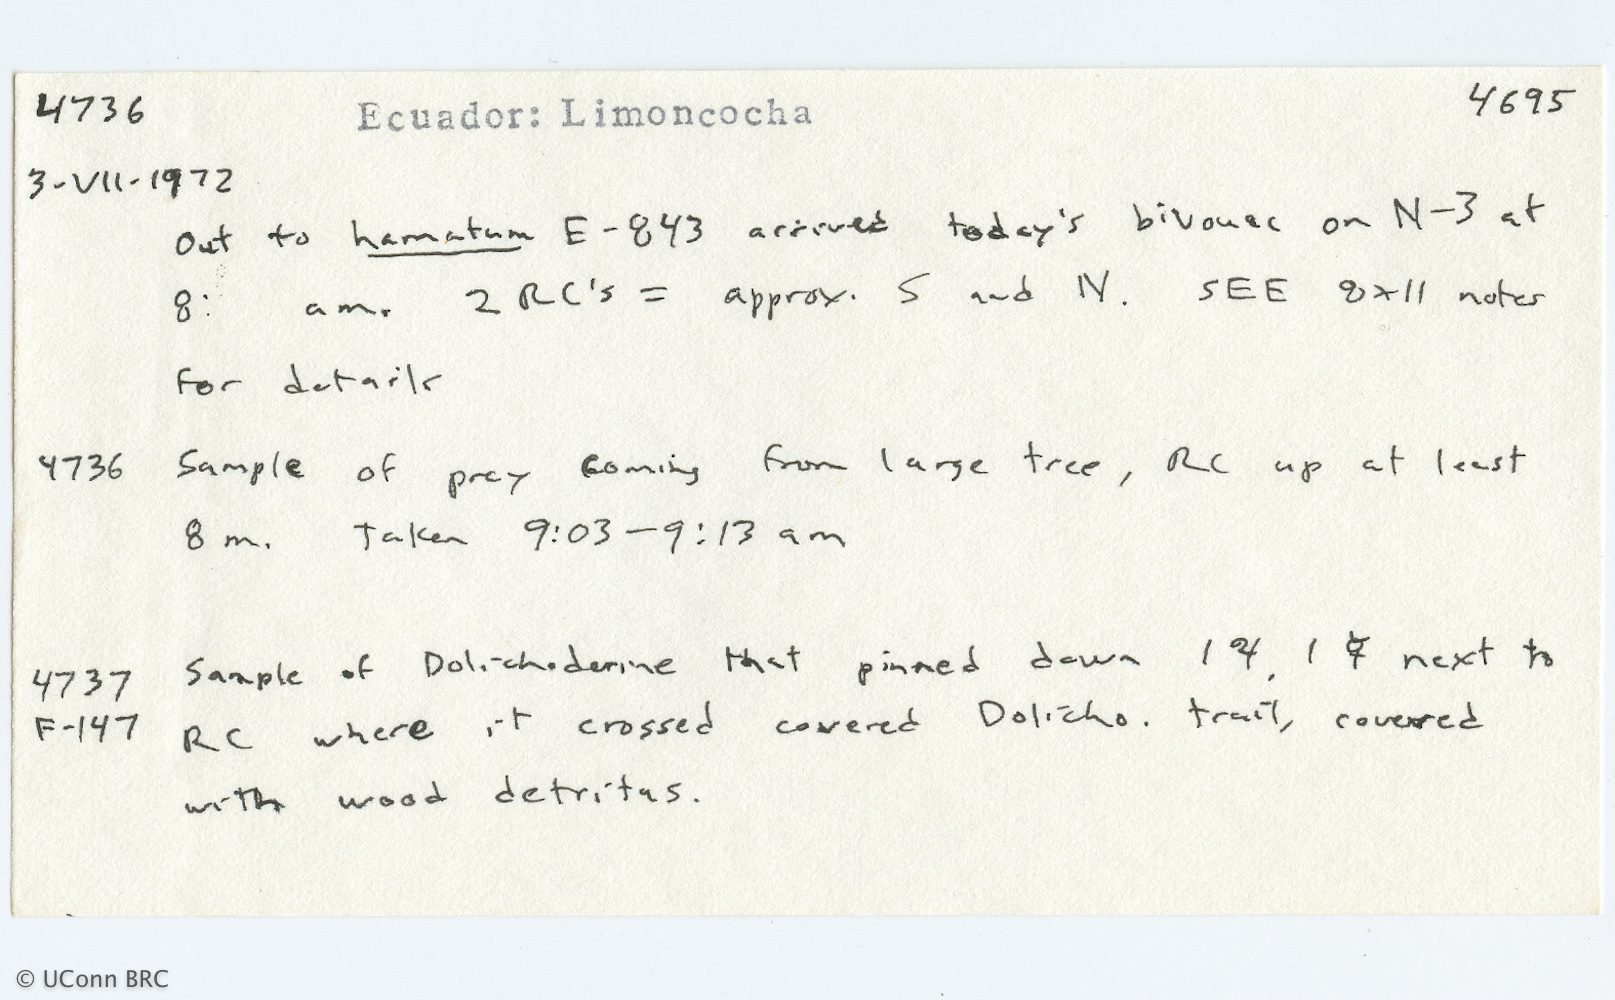 4736 Ecuador: Limoncocha 4695
3-VII-1972
Out to hamatum E-843 arrived today's bivouac on N-3 at
8: am. 2 RC's = approx. S and N. SEE 8x11 notes
For details
4736 Sample of prey coming from large tree, RC up at least
8 m. Taken 9:03-9:13 am
4737 Sample of Dolichoderine that pinned down 1 1 next to
F-147 RC where it crossed covered Dolicho. trail, covered
with wood detritus.
© UConn BRC